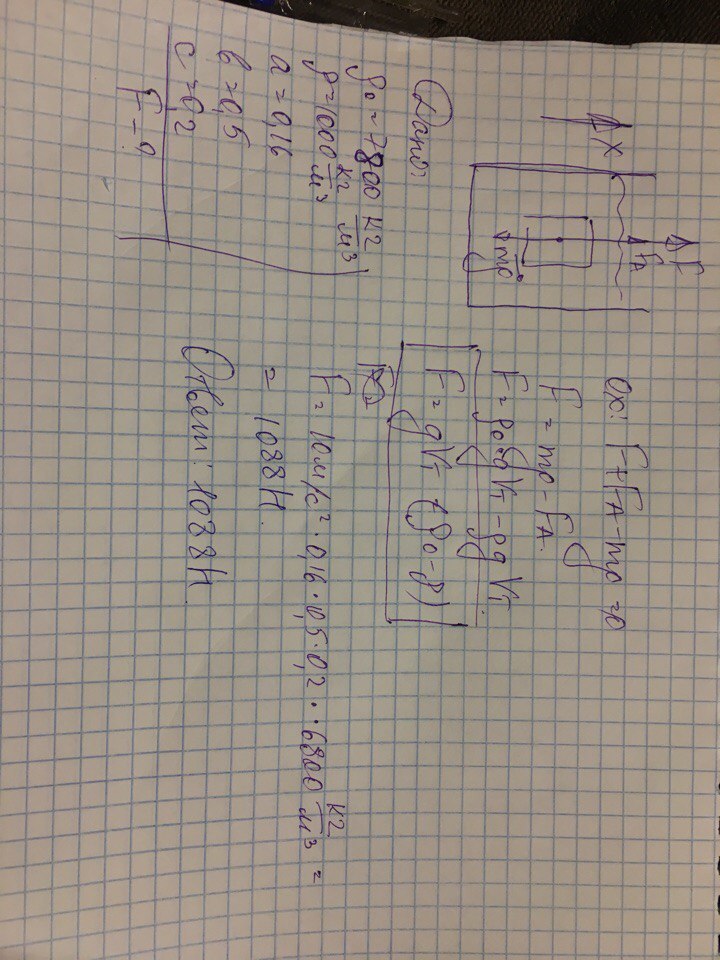 X
F
F_A
mg
Дано:
ρ₀ = 7800 кг/м³
ρ = 1000 кг/м³
a = 0,16
b = 0,5
c = 0,2
F - ?
Ox: F + F_A - mg = 0
F = mg - F_A.
F = ρ₀ g V_T - ρg V_T.
F = g V_T (ρ₀ - ρ)
F = 10 м/с² · 0,16 · 0,5 · 0,2 · · 6800 кг/м³ =
= 1088 Н.
Ответ: 1088 Н.